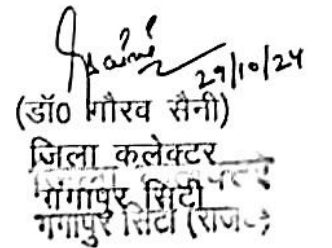 29/10/24
(डॉ0 गौरव सैनी)
जिला कलेक्टर
गंगापुर सिटी
गंगापुर सिटी (राज०)